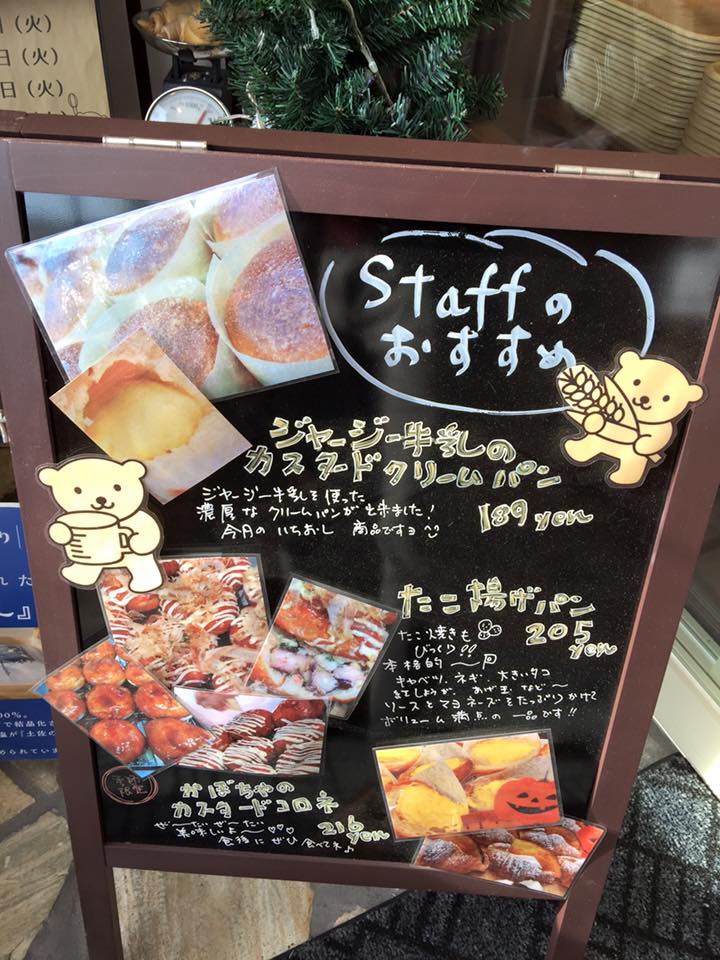 日（火）
日（火）
日（火）
Staffの
おすすめ
ジャージー牛乳の
カスタードクリームパン
ジャージー牛乳を使った
濃厚なクリームパンが出来ました！
今月のいちおし 商品ですヨ
189yen
たこ揚げパン
205
yen
たこ焼きも
びっくり!!
本格的〜
キャベツ、ネギ、大きいタコ
紅しょうが、あげ玉 など〜
ソースとマヨネーズをたっぷりかけて
ボリューム満点の一品です!!
季節
限定
かぼちゃの
カスタードコロネ
216
yen
ぜ〜ったいぜ〜ったい
美味しいよ〜♡♡♡
食後にぜひ食べてネ♪
れた
〜』
00%。
で結晶化さ
塩が「土佐の
められてい